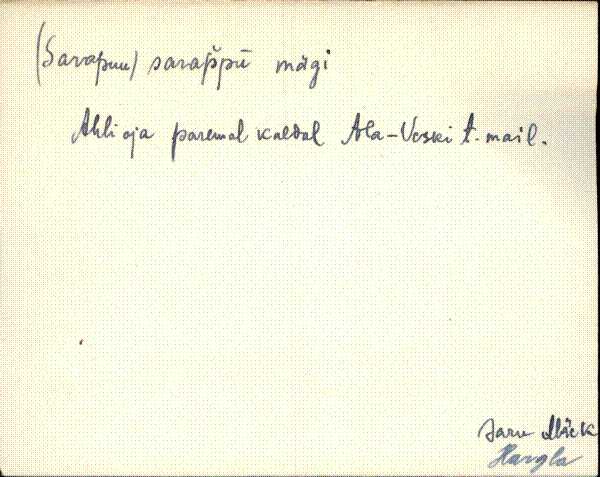 (Sarapuu) sarap̌pū mägi
Ahli oja paremal kaldal Ala-Veski t. mail.
Jaru
Hargla